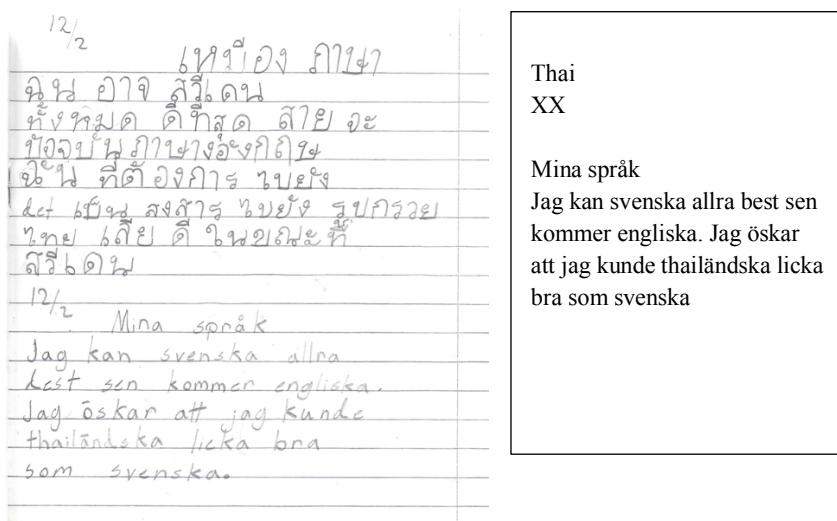 12/2
เหมือง ภาษา
ฉน อาจ สวีเดน
ทั้งหมด ดีที่สุด สาย จะ
ปัจจุบัน ภาษางอังกฤษ
ฉัน ที่ต้องการ ไบยัง
det เป็น สงสาร ไบยัง รูปกรวย
ไทย เสีย ดี ในขณะที่
สวีเดน
12/2
Mina språk
Jag kan svenska allra
best sen kommer engliska.
Jag öskar att jag kunde
thailändska licka bra
som svenska.
Thai
XX
Mina språk
Jag kan svenska allra best sen
kommer engliska. Jag öskar
att jag kunde thailändska licka
bra som svenska